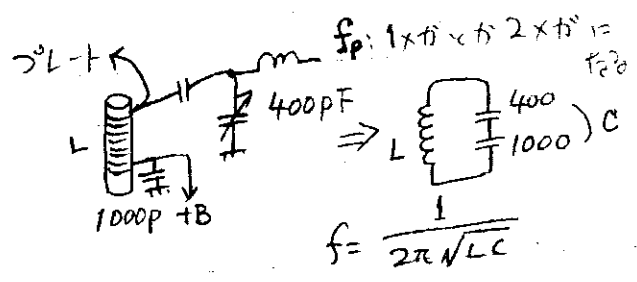 プレート
fp: 1メガとか2メガに
なる
400pF
⇒
L
1000p +B
L
400
1000
C
f= 1/2π√LC